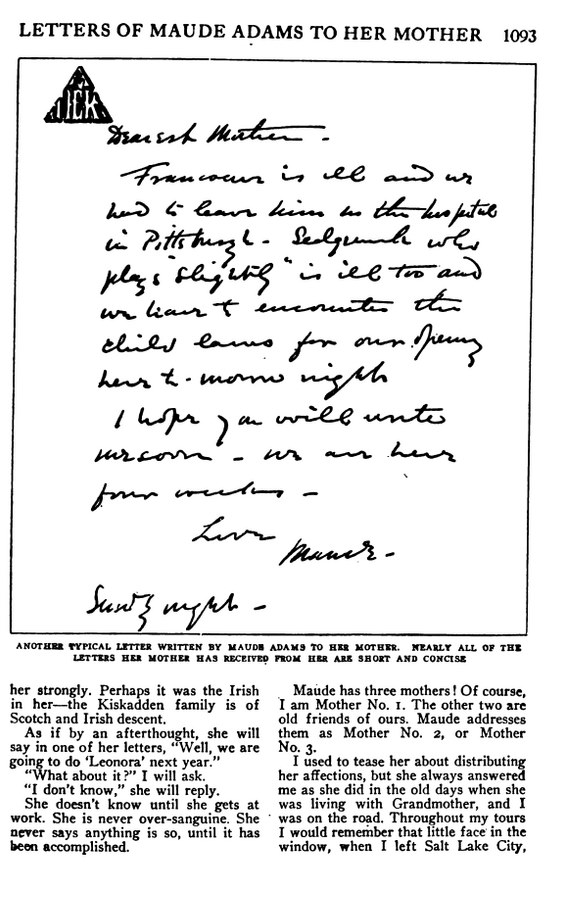 LETTERS OF MAUDE ADAMS TO HER MOTHER 1093
Dearest Mother -
is ill and we
had to leave him in the hospital
in Pittsburgh - who
plays "Slightly" is ill too and
we have to encounter the
child laws for our opening
here to-morrow night
I hope you will write
me soon - we are here
four weeks -
Love
Maude -
Sunday night -
ANOTHER TYPICAL LETTER WRITTEN BY MAUDE ADAMS TO HER MOTHER. NEARLY ALL OF THE
LETTERS HER MOTHER HAS RECEIVED FROM HER ARE SHORT AND CONCISE
her strongly. Perhaps it was the Irish
in her—the Kiskadden family is of
Scotch and Irish descent.
As if by an afterthought, she will
say in one of her letters, "Well, we are
going to do 'Leonora' next year."
"What about it?" I will ask.
"I don't know," she will reply.
She doesn't know until she gets at
work. She is never over-sanguine. She
never says anything is so, until it has
been accomplished.
Maude has three mothers! Of course,
I am Mother No. 1. The other two are
old friends of ours. Maude addresses
them as Mother No. 2, or Mother
No. 3.
I used to tease her about distributing
her affections, but she always answered
me as she did in the old days when she
was living with Grandmother, and I
was on the road. Throughout my tours
I would remember that little face in the
window, when I left Salt Lake City,